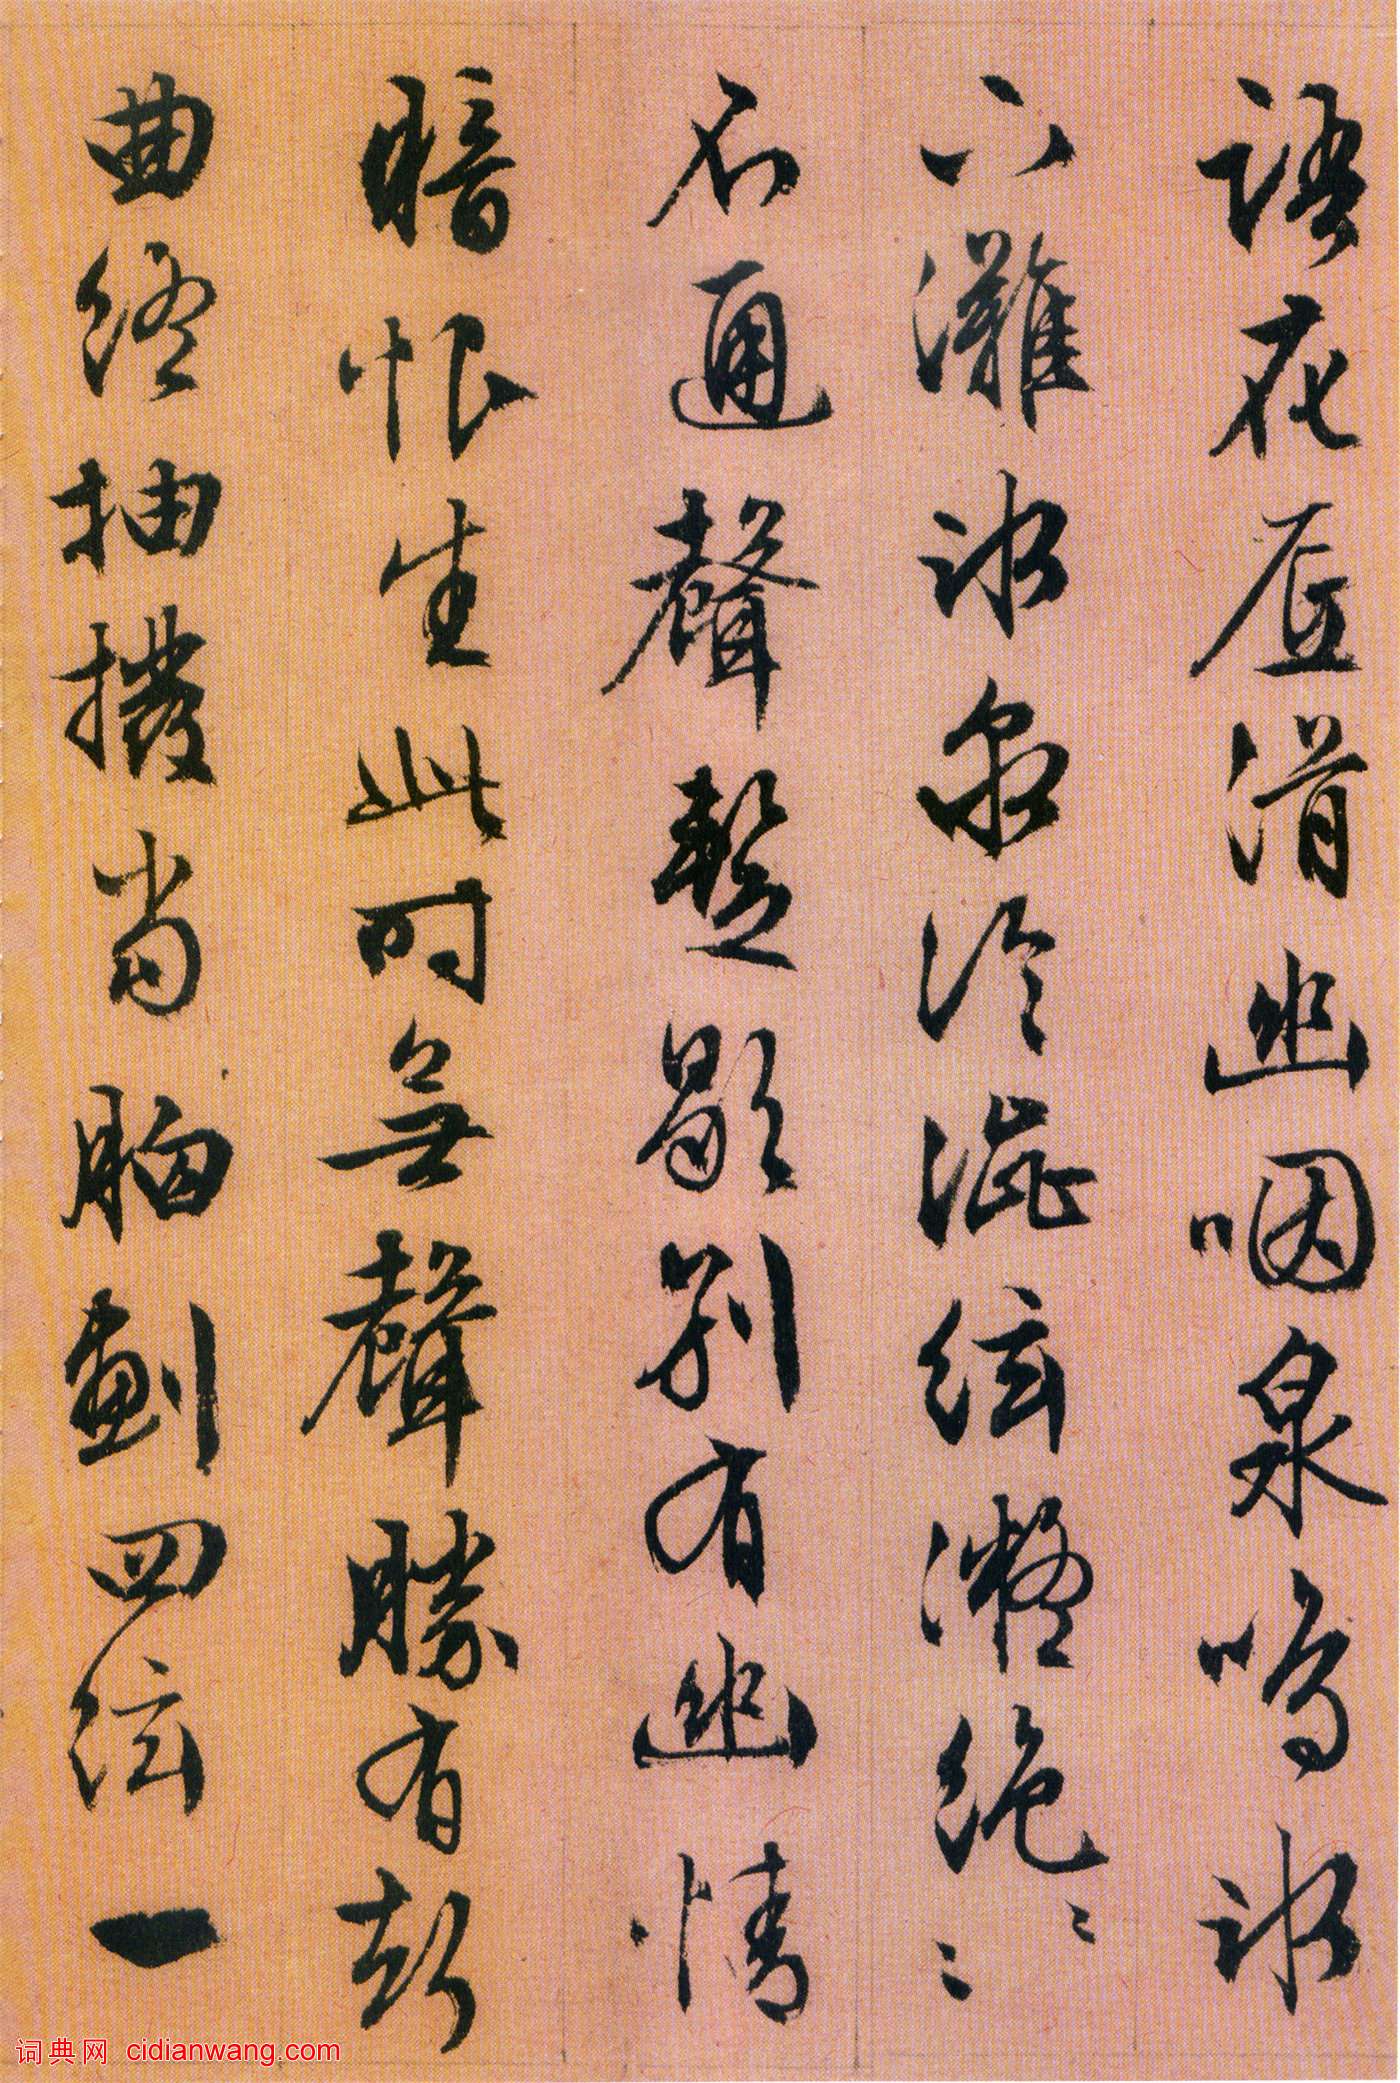 語花底滑幽咽泉鳴冰
下灘冰泉冷澁絃凝絶〻〻
不通聲暫歇別有幽情
暗恨生此時無聲勝有聲
曲終抽撥當胸劃四絃一
词典网 cidianwang.com